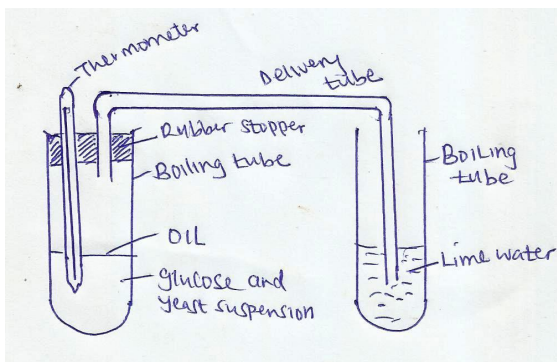 Thermometer
Delivery
tube
Rubber stopper
Boiling tube
Boiling
tube
OIL
Lime water
glucose and
yeast suspension